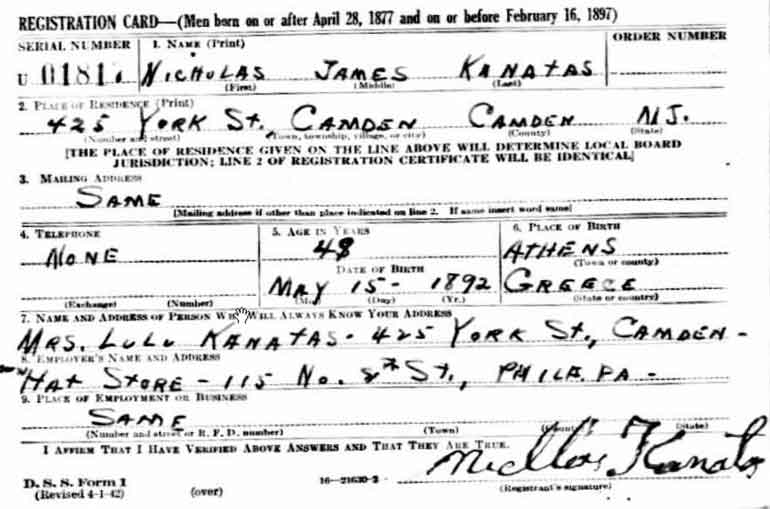 REGISTRATION CARD—(Men born on or after April 28, 1877 and on or before February 16, 1897)
SERIAL NUMBER 1. NAME (Print) ORDER NUMBER
U 01817 NICHOLAS JAMES KANATAS
(First) (Middle) (Last)
2. PLACE OF RESIDENCE (Print)
425 YORK St. CAMDEN CAMDEN N.J.
(Number and street) (Town, township, village, or city) (County) (State)
[THE PLACE OF RESIDENCE GIVEN ON THE LINE ABOVE WILL DETERMINE LOCAL BOARD
JURISDICTION; LINE 2 OF REGISTRATION CERTIFICATE WILL BE IDENTICAL]
3. MAILING ADDRESS
SAME
[Mailing address if other than place indicated on line 2. If same insert word same]
4. TELEPHONE 5. AGE IN YEARS 6. PLACE OF BIRTH
NONE 48 ATHENS
(Town or county)
DATE OF BIRTH
MAY 15 - 1892 GREECE
(Exchange) (Number) (Mo.) (Day) (Yr.) (State or country)
7. NAME AND ADDRESS OF PERSON WHO WILL ALWAYS KNOW YOUR ADDRESS
MRS. LULU KANATAS - 425 YORK St., CAMDEN -
8. EMPLOYER'S NAME AND ADDRESS
HAT STORE - 115 No. 8th St., PHILA. PA -
9. PLACE OF EMPLOYMENT OR BUSINESS
SAME
(Number and street or R. F. D. number) (Town) (County) (State)
I AFFIRM THAT I HAVE VERIFIED ABOVE ANSWERS AND THAT THEY ARE TRUE.
D. S. S. Form 1
(Revised 4-1-42) (over) 16—21630-2 Kanatas
(Registrant's signature)